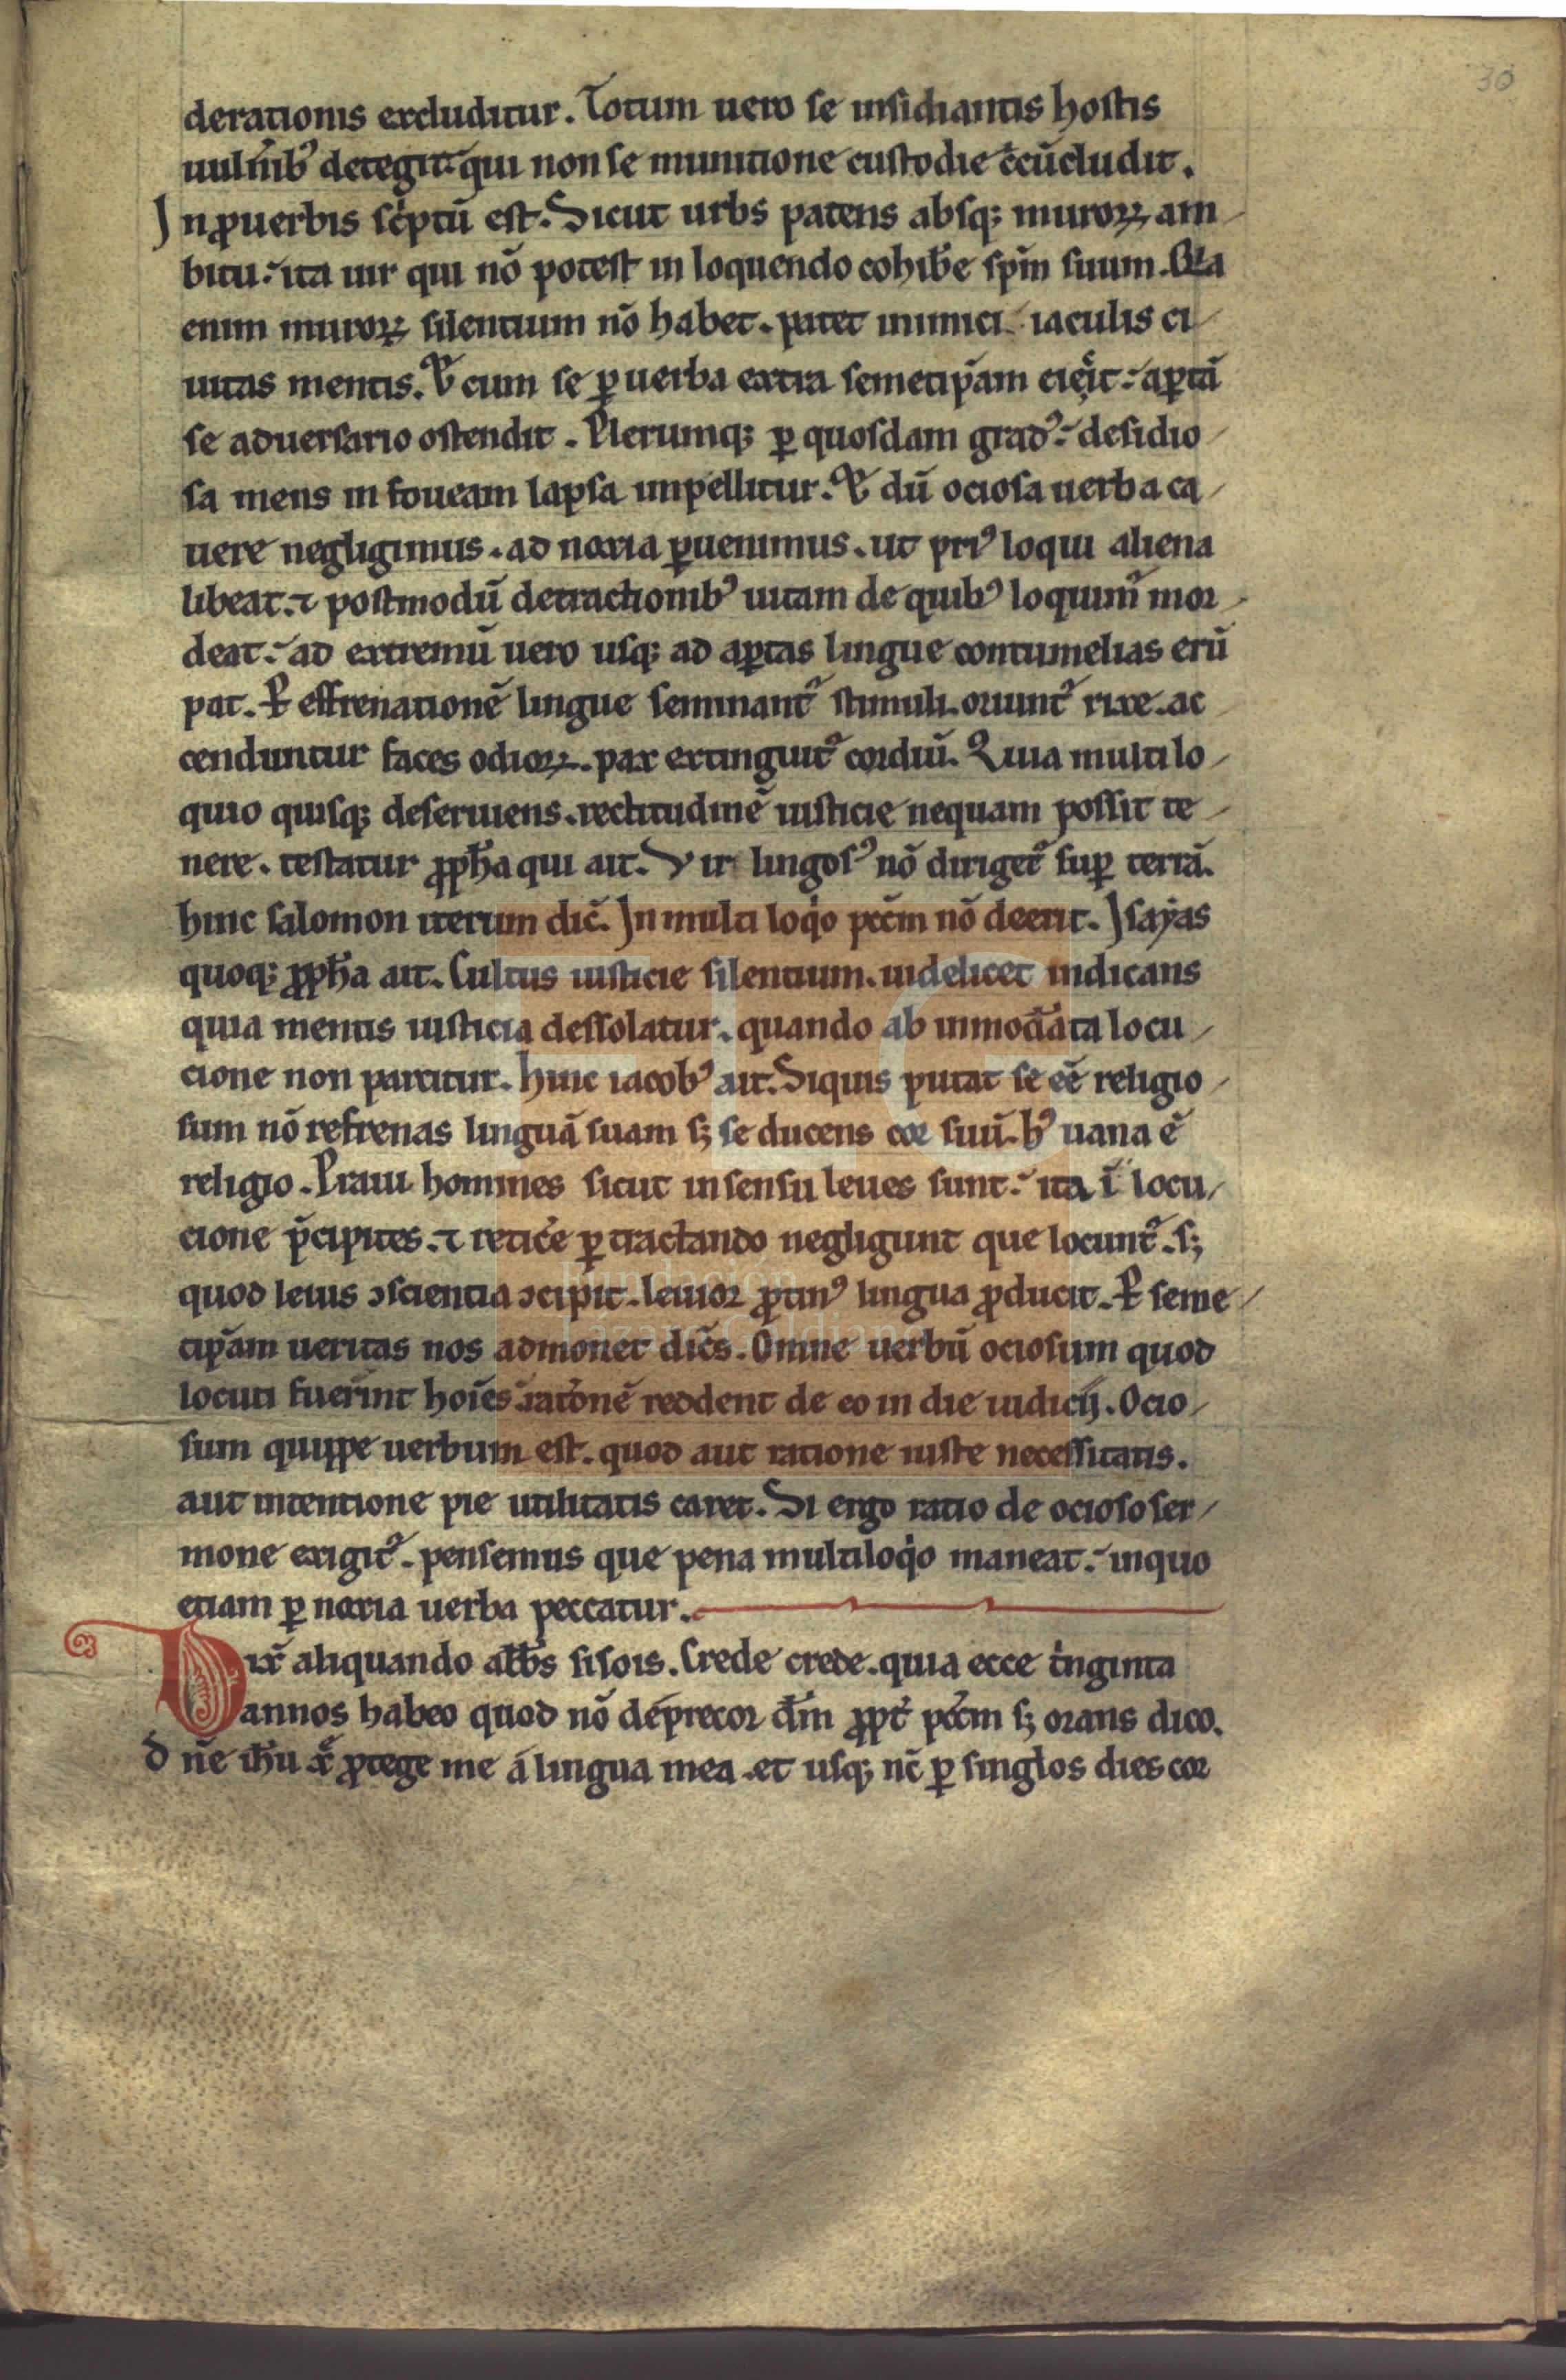 30
derationis excluditur. Totum uero se insidiantis hostis
uulnib᷒ detegit qui non se munitione custodie c̄cūcludit.
In ꝓuerbis sc̄ptū est. Sicut urbs patens absq; muroꝝ am-
bitu: ita uir qui nō potest in loquendo cohibe᷒ sp̄m suum. Q̄a
enim muroꝝ silentium nō habet. patet inimici iaculis ci-
uitas mentis. Et cum se ꝑ uerba extra semetip̄am eicit: aꝑtā
se aduersario ostendit. Plerumq; ꝑ quosdam grad᷒: desidio-
sa mens in foueam lapsa impellitur. Et dū ociosa uerba ca-
uere negligimus. ad noxia ꝑuenimus. ut pri᷒ loqui aliena
libeat. ⁊ postmodū detractionib᷒ uitam de quib᷒ loquim̄ mor-
deat: ad extremū uero usq; ad aꝑtas lingue contumelias erū
pat. Et effrenationē lingue seminant᷒ stimuli. oriunt᷒ rixe. ac-
cenduntur faces odioꝝ. pax extinguit᷒ cordiū. Quia multilo-
quio quisq; deseruiens. rectitudinē iusticie nequam possit te-
nere. testatur ꝓph̄a qui ait. Vir lingos᷒ nō diriget᷒ suꝑ terrā.
hinc salomon iterum dic̄. In multi loqⁱo pcc̄m nō deerit. Isayas
quoq; ꝓph̄a ait. Cultus iusticie silentium. uidelicet indicans
quia mentis iusticia dessolatur. quando ab inmod̄ata locu-
cione non parcitur. hinc iacob᷒ ait. Siquis putat se eē religio-
sum nō refrenas linguā suam s; se ducens cor suū. h᷒ uana ē
religio. Praui homines sicut in sensu leues sunt: ita ī locu-
cione p̄cipites. ⁊ retice᷒ ꝑ tractando negligunt que locunt᷒. s;
quod leuis ɔscientia ɔcipit. leuior ꝓtin᷒ lingua ꝓducit. Et seme-
tip̄am ueritas nos admonet dic̄s. Omne uerbū ociosum quod
locuti fuerint hoīes: rat᷒onē reddent de eo in die iudicij. Ocio-
sum quippe uerbum est. quod aut ratione iuste necessitatis.
aut intentione pie utilitatis caret. Si ergo ratio de ocioso ser-
mone exigit᷒. pensemus que pena multiloqⁱo maneat: inquo
etiam ꝑ noxia uerba peccatur.
Dix̄ aliquando abb̄s sisois. Crede crede. quia ecce tⁱnginta
annos habeo quod nō deprecor d̄m ꝓpt᷒ pcc̄m s; orans dico.
d n̄e ih̄u xp̄e ꝓtege me á lingua mea. et usq; nc̄ ꝑ singl̄os dies cor
Fundación
Lázaro Galdiano